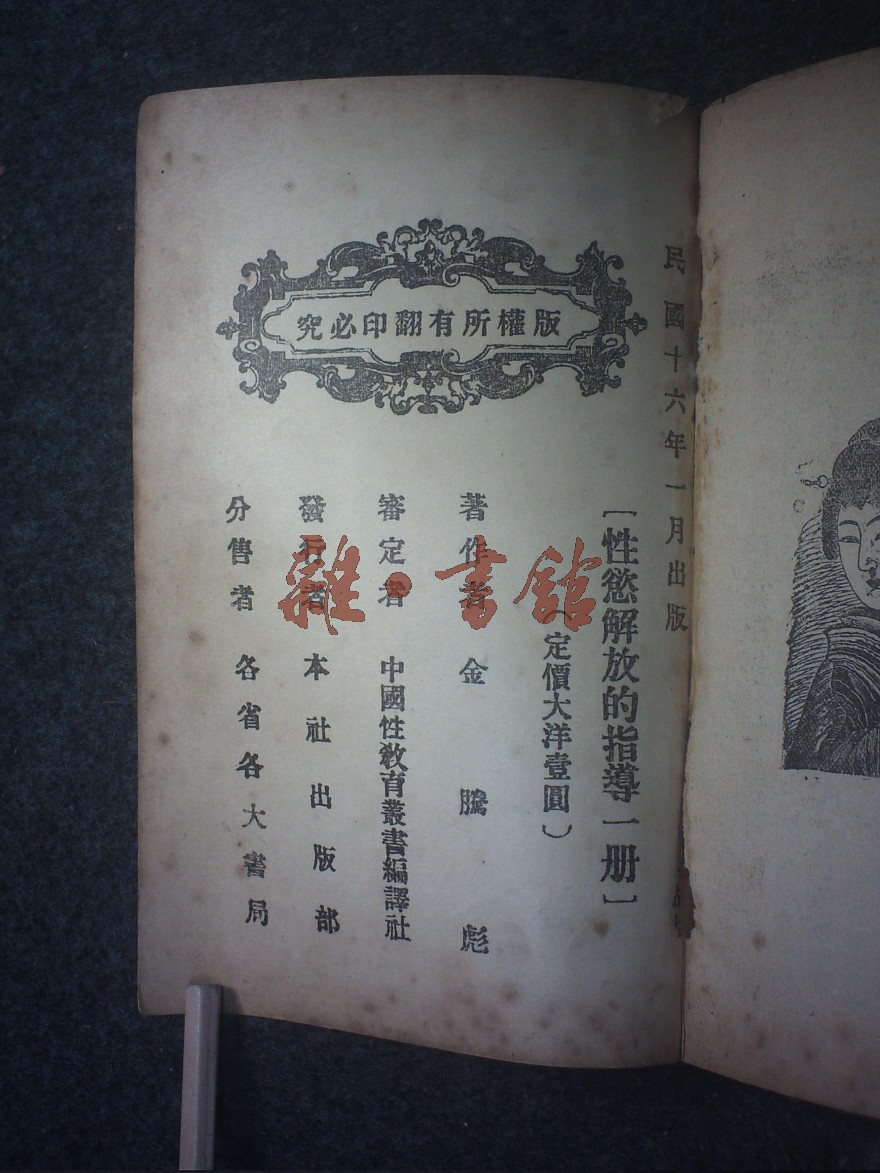 版權所有翻印必究
民國十六年一月出版
[性慾解放的指導一册]
(定價大洋壹圓)
著作者 金騰彪
審定者 中國性教育叢書編譯社
發行者 本社出版部
分售者 各省各大書局
雜·書館